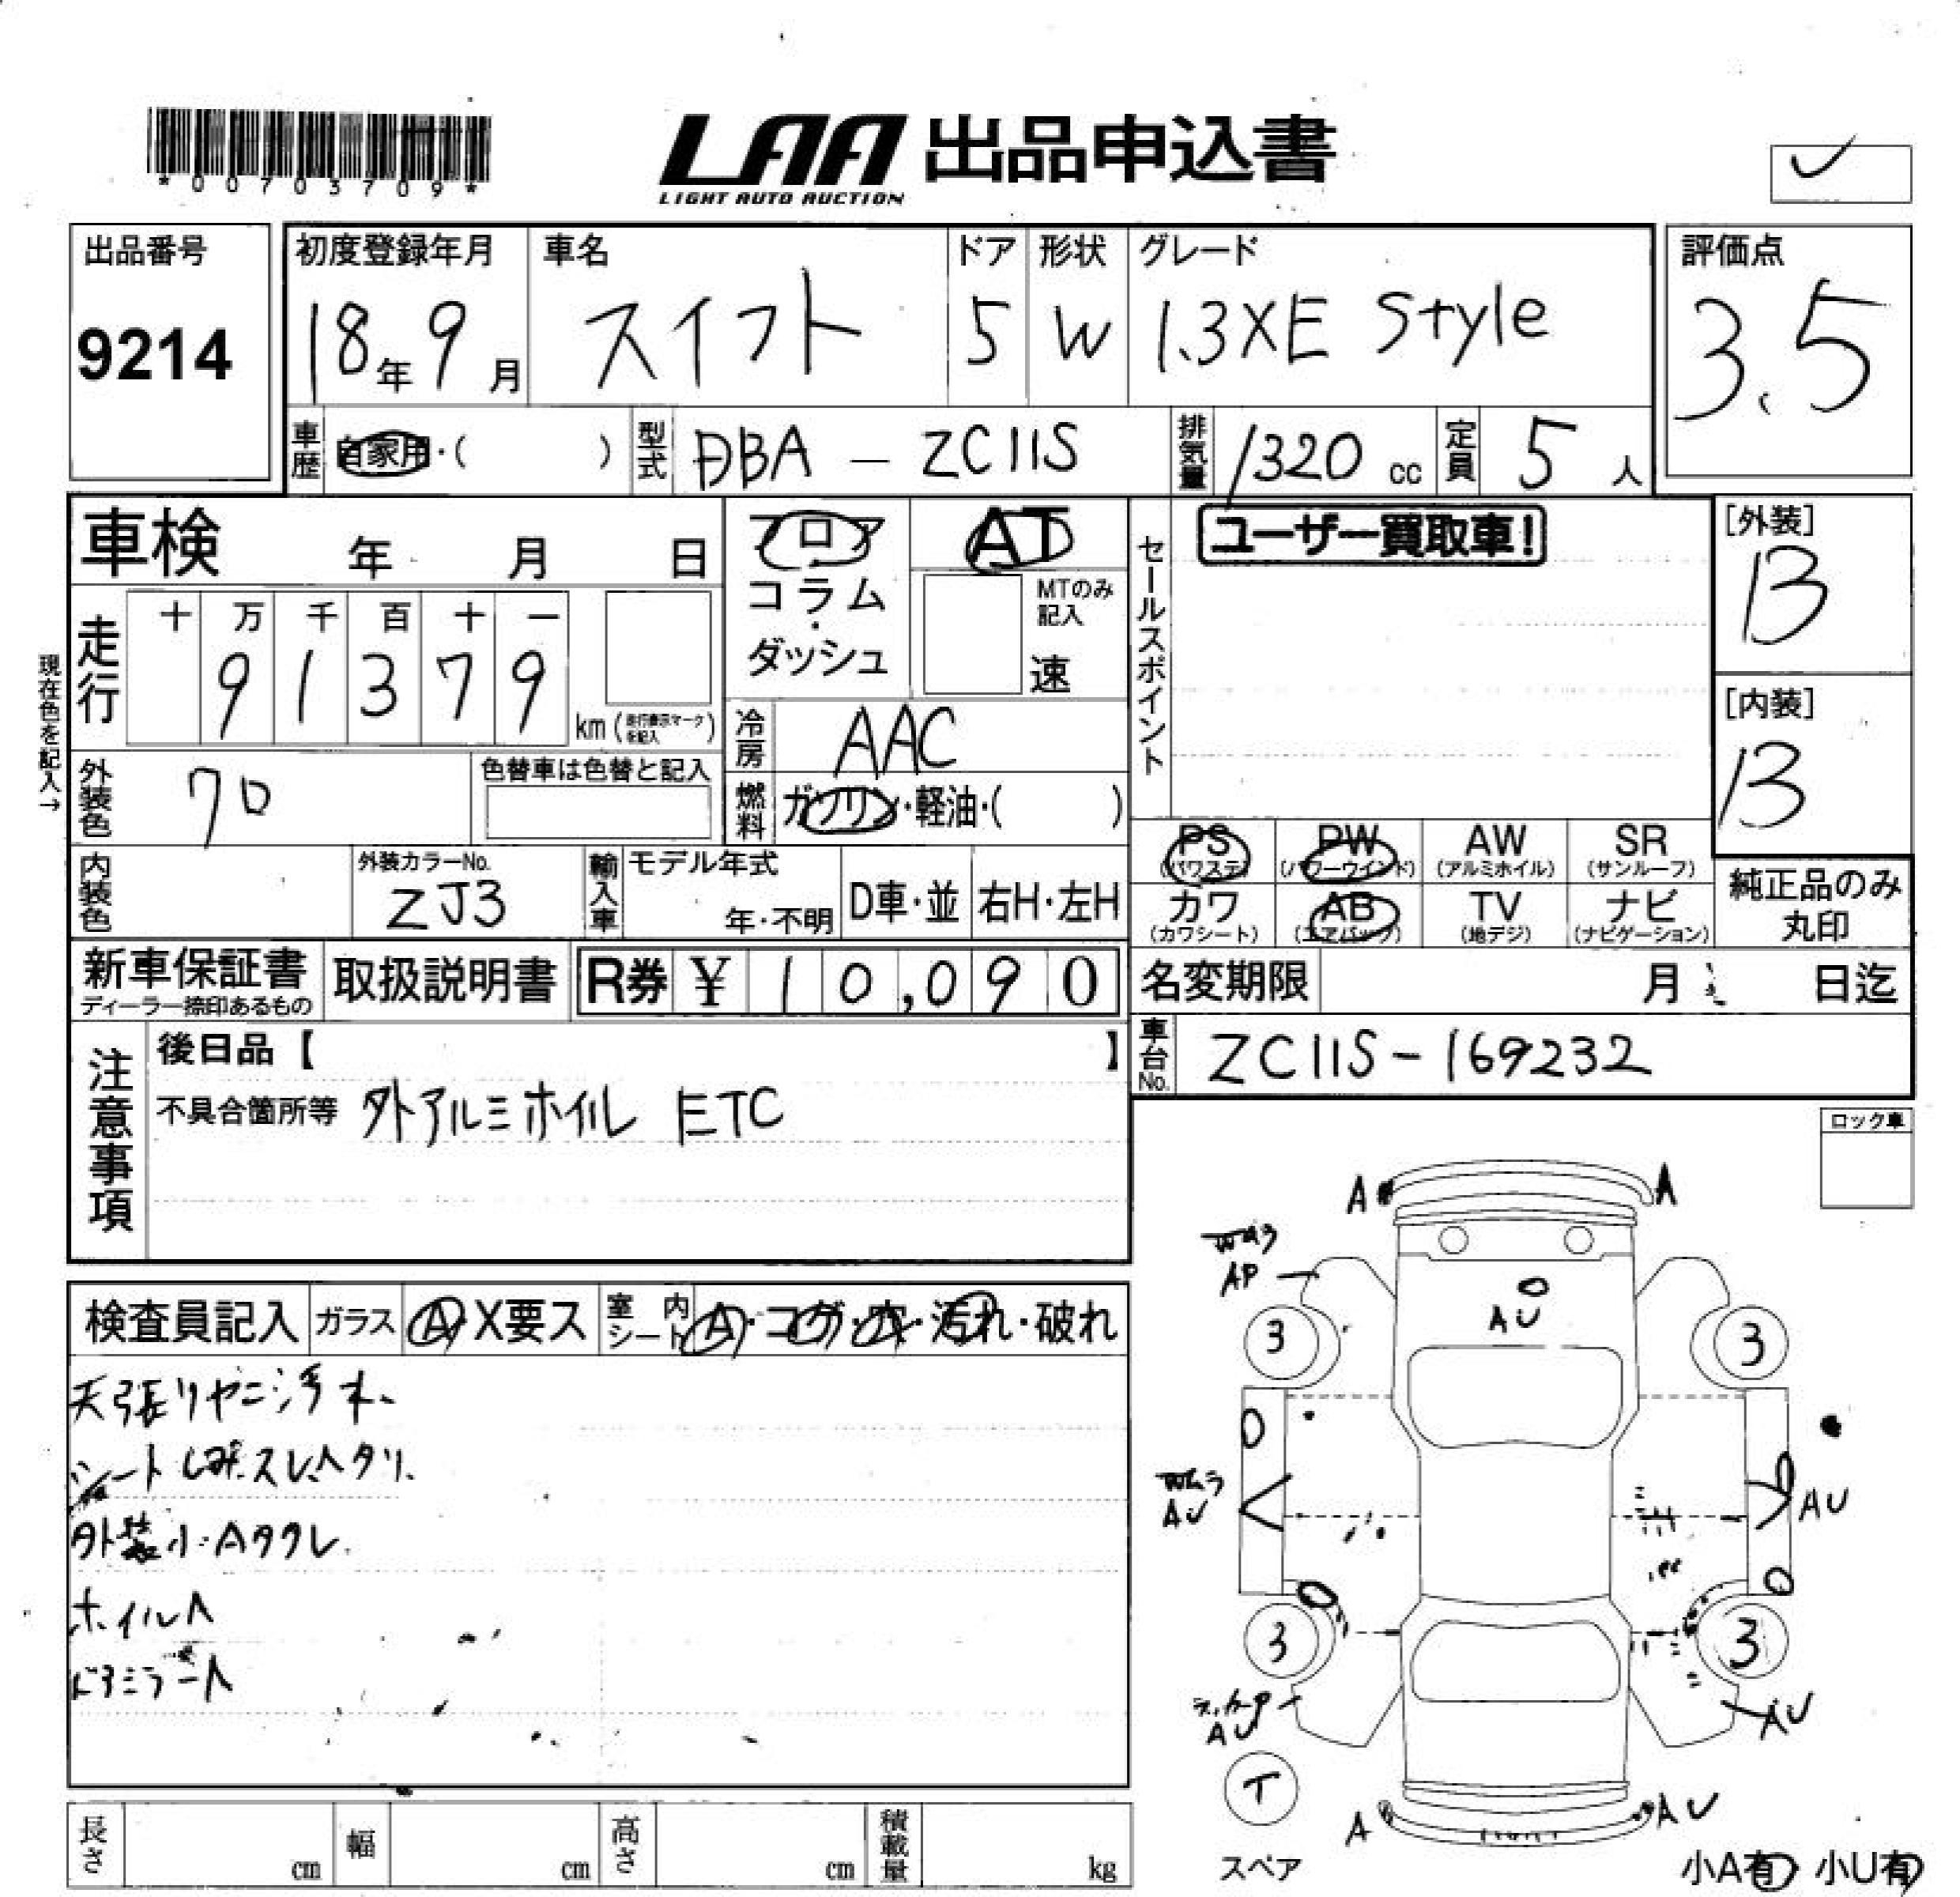 *00703709*
LAA 出品申込書
LIGHT AUTO AUCTION
出品番号
9214
初度登録年月
18年9月
車名
スイフト
ドア
5
形状
W
グレード
1.3XE Style
評価点
3.5
車歴
自家用・( )
型式
DBA - ZC11S
排気量
1320 cc
定員
5 人
車検 年 月 日
フロア・コラム・ダッシュ
AT
MTのみ記入
速
セールスポイント
ユーザー買取車!
[外装]
B
[内装]
B
現在色を記入→
走行
十 万 千 百 十 一
9 1 3 7 9
km (走行表示マークを記入)
冷房
AAC
燃料
ガソリン・軽油・( )
外装色
クロ
色替車は色替と記入
内装色
外装カラーNo.
ZJ3
輸入車
モデル年式
年・不明
D車・並
右H・左H
PS (パワステ)
PW (パワーウインド)
AW (アルミホイル)
SR (サンルーフ)
カワ (カワシート)
AB (エアバッグ)
TV (地デジ)
ナビ (ナビゲーション)
純正品のみ丸印
新車保証書
ディーラー捺印あるもの
取扱説明書
R券 ¥ 10,090
名変期限 月 日迄
車台No.
ZC11S-169232
注意事項
後日品【 】
不具合箇所等 外アルミホイル ETC
ロック車
検査員記入
ガラス
A X要ス
室内シート
A・コゲ・穴・汚れ・破れ
天張リヤニ汚れ
シートしみ.スレ.ヘタリ.
外装小.Aタクレ.
ホイルA
ドアミラーA
A
A
AP
AU
3
3
AU
AU
3
3
AU
AU
T
スペア
A
AU
小A有 小U有
長さ cm
幅 cm
高さ cm
積載量 kg